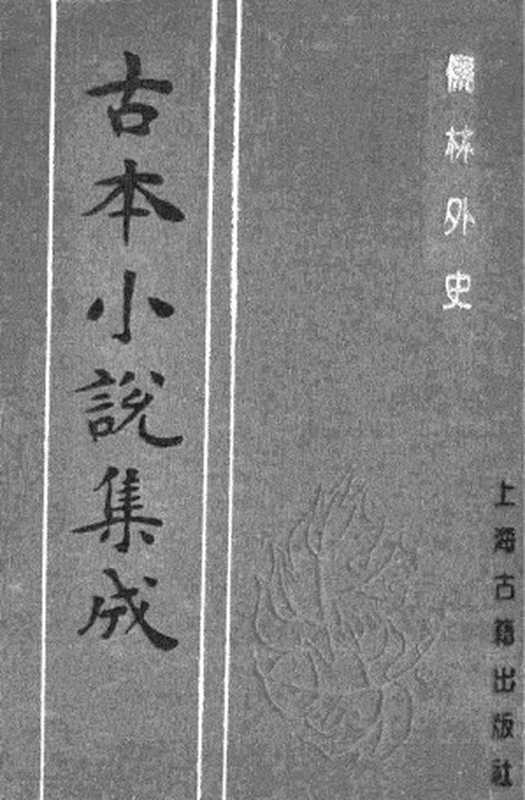 儒林外史
古本小說集成
上海古籍出版社